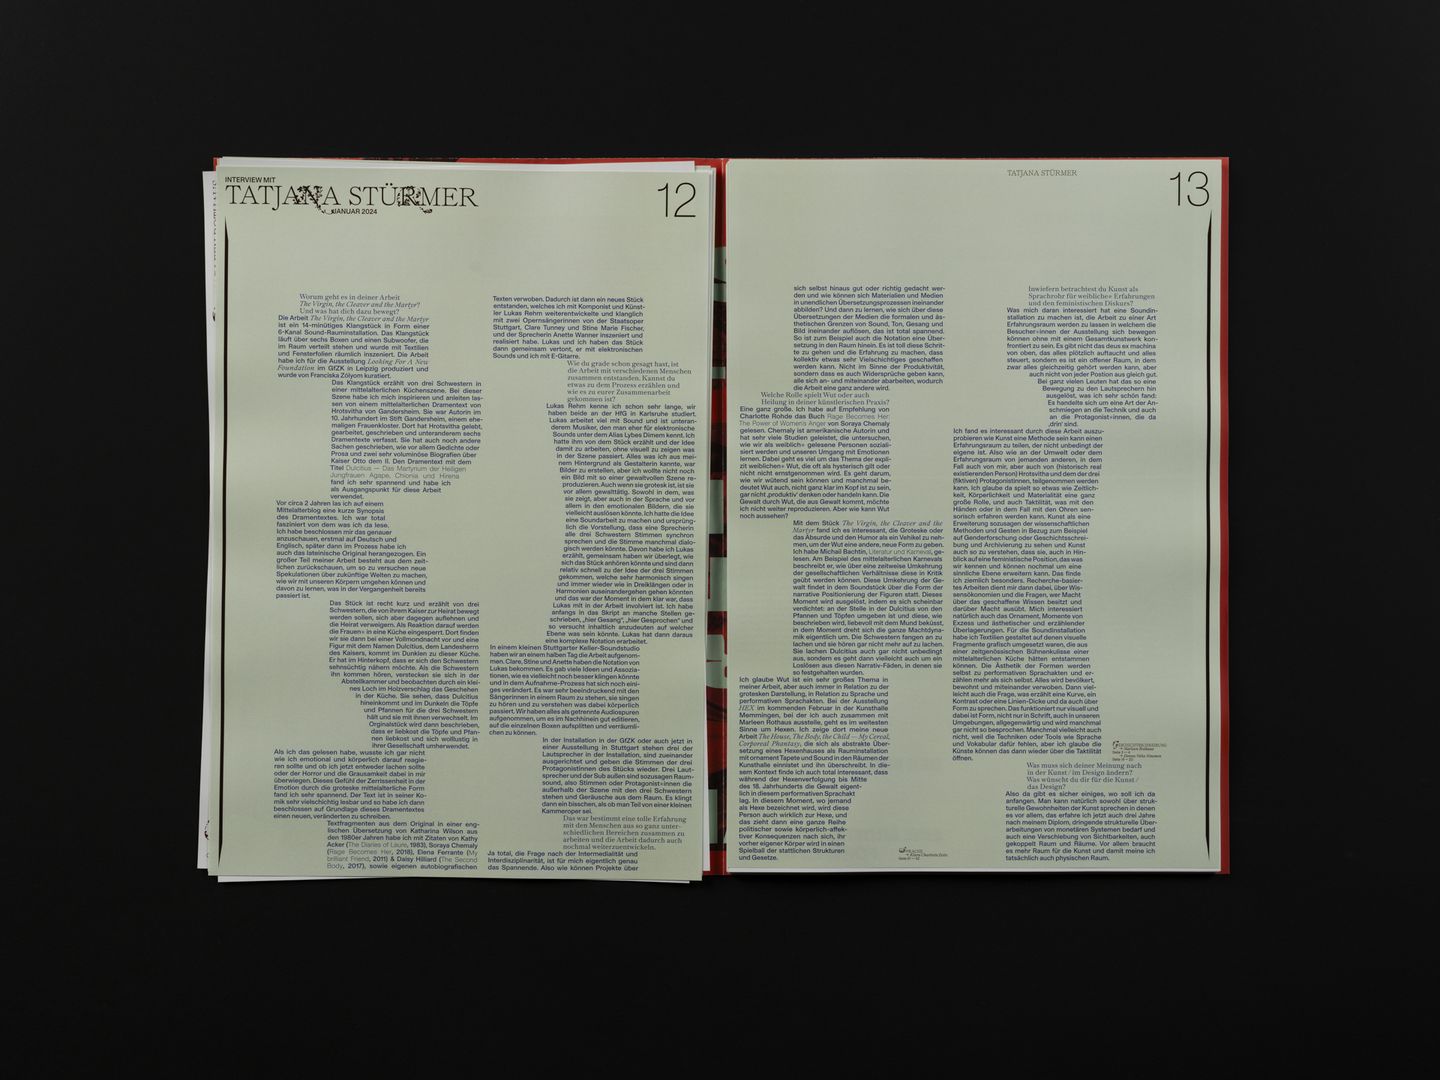 INTERVIEW MIT
TATJANA STÜRMER
JANUAR 2024
12
Worum geht es in deiner Arbeit
The Virgin, the Cleaver and the Martyr?
Und was hat dich dazu bewegt?
Die Arbeit The Virgin, the Cleaver and the Martyr
ist ein 14-minütiges Klangstück in Form einer
6-Kanal Sound-Rauminstallation. Das Klangstück
läuft über sechs Boxen und einen Subwoofer, die
im Raum verteilt stehen und wurde mit Textilien
und Fensterfolien räumlich inszeniert. Die Arbeit
habe ich für die Ausstellung Looking For A New
Foundation im GfZK in Leipzig produziert und
wurde von Franciska Zólyom kuratiert.
Das Klangstück erzählt von drei Schwestern in
einer mittelalterlichen Küchenszene. Bei dieser
Szene habe ich mich inspirieren und anleiten las-
sen von einem mittelalterlichen Dramentext von
Hrotsvitha von Gandersheim. Sie war Autorin im
10. Jahrhundert im Stift Gandersheim, einem ehe-
maligen Frauenkloster. Dort hat Hrotsvitha gelebt,
gearbeitet, geschrieben und unteranderem sechs
Dramentexte verfasst. Sie hat auch noch andere
Sachen geschrieben, wie vor allem Gedichte oder
Prosa und zwei sehr voluminöse Biografien über
Kaiser Otto dem II. Den Dramentext mit dem
Titel Dulcitius — Das Martyrium der Heiligen
Jungfrauen Agape, Chionia und Hirena
fand ich sehr spannend und habe ich
als Ausgangspunkt für diese Arbeit
verwendet.
Vor circa 2 Jahren las ich auf einem
Mittelalterblog eine kurze Synopsis
des Dramentextes. Ich war total
fasziniert von dem was ich da lese.
Ich habe beschlossen mir das genauer
anzuschauen, erstmal auf Deutsch und
Englisch, später dann im Prozess habe ich
auch das lateinische Original herangezogen. Ein
großer Teil meiner Arbeit besteht aus dem zeit-
lichen zurückschauen, um so zu versuchen neue
Spekulationen über zukünftige Welten zu machen,
wie wir mit unseren Körpern umgehen können und
davon zu lernen, was in der Vergangenheit bereits
passiert ist.
Das Stück ist recht kurz und erzählt von drei
Schwestern, die von ihrem Kaiser zur Heirat bewegt
werden sollen, sich aber dagegen auflehnen und
die Heirat verweigern. Als Reaktion darauf werden
die Frauen* in eine Küche eingesperrt. Dort finden
wir sie dann bei einer Vollmondnacht vor und eine
Figur mit dem Namen Dulcitius, dem Landesherrn
des Kaisers, kommt im Dunklen zu dieser Küche.
Er hat im Hinterkopf, dass er sich den Schwestern
sehnsüchtig nähern möchte. Als die Schwestern
ihn kommen hören, verstecken sie sich in der
Abstellkammer und beobachten durch ein klei-
nes Loch im Holzverschlag das Geschehen
in der Küche. Sie sehen, dass Dulcitius
hineinkommt und im Dunkeln die Töpfe
und Pfannen für die drei Schwestern
hält und sie mit ihnen verwechselt. Im
Orginalstück wird dann beschrieben,
dass er liebkost die Töpfe und Pfan-
nen liebkost und sich wolllustig in
ihrer Gesellschaft umherwendet.
Als ich das gelesen habe, wusste ich gar nicht
wie ich emotional und körperlich darauf reagie-
ren sollte und ob ich jetzt entweder lachen sollte
oder der Horror und die Grausamkeit dabei in mir
überwiegen. Dieses Gefühl der Zerrissenheit in der
Emotion durch die groteske mittelalterliche Form
fand ich sehr spannend. Der Text ist in seiner Ko-
mik sehr vielschichtig lesbar und so habe ich dann
beschlossen auf Grundlage dieses Dramentextes
einen neuen, veränderten zu schreiben.
Textfragmenten aus dem Original in einer eng-
lischen Übersetzung von Katharina Wilson aus
den 1980er Jahren habe ich mit Zitaten von Kathy
Acker (The Diaries of Laure, 1983), Soraya Chemaly
(Rage Becomes Her, 2018), Elena Ferrante (My
brilliant Friend, 2011) & Daisy Hilliard (The Second
Body, 2017), sowie eigenen autobiografischen
Texten verwoben. Dadurch ist dann ein neues Stück
entstanden, welches ich mit Komponist und Künst-
ler Lukas Rehm weiterentwickelte und klanglich
mit zwei Opernsängerinnen von der Staatsoper
Stuttgart, Clare Tunney und Stine Marie Fischer,
und der Sprecherin Anette Wanner inszeniert und
realisiert habe. Lukas und ich haben das Stück
dann gemeinsam vertont, er mit elektronischen
Sounds und ich mit E-Gitarre.
Wie du grade schon gesagt hast, ist
die Arbeit mit verschiedenen Menschen
zusammen entstanden. Kannst du
etwas zu dem Prozess erzählen und
wie es zu eurer Zusammenarbeit
gekommen ist?
Lukas Rehm kenne ich schon sehr lange, wir
haben beide an der HfG in Karlsruhe studiert.
Lukas arbeitet viel mit Sound und ist unteran-
derem Musiker, den man eher für elektronische
Sounds unter dem Alias Lybes Dimem kennt. Ich
hatte ihm von dem Stück erzählt und der Idee
damit zu arbeiten, ohne visuell zu zeigen was
in der Szene passiert. Alles was ich aus mei-
nem Hintergrund als Gestalterin kannte, war
Bilder zu erstellen, aber ich wollte nicht noch
ein Bild mit so einer gewaltvollen Szene re-
produzieren. Auch wenn sie grotesk ist, ist sie
vor allem gewalttätig. Sowohl in dem, was
sie zeigt, aber auch in der Sprache und vor
allem in den emotionalen Bildern, die sie
vielleicht auslösen könnte. Ich hatte die Idee
eine Soundarbeit zu machen und ursprüng-
lich die Vorstellung, dass eine Sprecherin
alle drei Schwestern Stimmen synchron
sprechen und die Stimme manchmal dialo-
gisch werden könnte. Davon habe ich Lukas
erzählt, gemeinsam haben wir überlegt, wie
sich das Stück anhören könnte und sind dann
relativ schnell zu der Idee der drei Stimmen
gekommen, welche sehr harmonisch singen
und immer wieder wie in Dreiklängen oder in
Harmonien auseinandergehen gehen könnten
und das war der Moment in dem klar war, dass
Lukas mit in der Arbeit involviert ist. Ich habe
anfangs in das Skript an manche Stellen ge-
schrieben, „hier Gesang", „hier Gesprochen" und
so versucht inhaltlich anzudeuten auf welcher
Ebene was sein könnte. Lukas hat dann daraus
eine komplexe Notation erarbeitet.
In einem kleinen Stuttgarter Keller-Soundstudio
haben wir an einem halben Tag die Arbeit aufgenom-
men. Clare, Stine und Anette haben die Notation von
Lukas bekommen. Es gab viele Ideen und Assozia-
tionen, wie es vielleicht noch besser klingen könnte
und in dem Aufnahme-Prozess hat sich noch eini-
ges verändert. Es war sehr beeindruckend mit den
Sängerinnen in einem Raum zu stehen, sie singen
zu hören und zu verstehen was dabei körperlich
passiert. Wir haben alles als getrennte Audiospuren
aufgenommen, um es im Nachhinein gut editieren,
auf die einzelnen Boxen aufsplitten und verräumli-
chen zu können.
In der Installation in der GfZK oder auch jetzt in
einer Ausstellung in Stuttgart stehen drei der
Lautsprecher in der Installation, sind zueinander
ausgerichtet und geben die Stimmen der drei
Protagonistinnen des Stückes wieder. Drei Laut-
sprecher und der Sub außen sind sozusagen Raum-
sound, also Stimmen oder Protagonist*innen die
außerhalb der Szene mit den drei Schwestern
stehen und Geräusche aus dem Raum. Es klingt
dann ein bisschen, als ob man Teil von einer kleinen
Kammeroper sei.
Das war bestimmt eine tolle Erfahrung
mit den Menschen aus so ganz unter-
schiedlichen Bereichen zusammen zu
arbeiten und die Arbeit dadurch auch
nochmal weiterzuentwickeln.
Ja total, die Frage nach der Intermedialität und
Interdisziplinarität, ist für mich eigentlich genau
das Spannende. Also wie können Projekte über
TATJANA STÜRMER
13
sich selbst hinaus gut oder richtig gedacht wer-
den und wie können sich Materialien und Medien
in unendlichen Übersetzungsprozessen ineinander
abbilden? Und daran zu lernen, wie sich über diese
Übersetzungen der Medien die formalen und äs-
thetischen Grenzen von Sound, Ton, Gesang und
Bild ineinander auflösen, das ist total spannend.
So ist zum Beispiel auch die Notation eine Über-
setzung in den Raum hinein. Es ist toll diese Schrit-
te zu gehen und die Erfahrung zu machen, dass
kollektiv etwas sehr Vielschichtiges geschaffen
werden kann. Nicht im Sinne der Produktivität,
sondern dass es auch Widersprüche geben kann,
alle sich an- und miteinander abarbeiten, wodurch
die Arbeit eine ganz andere wird.
Welche Rolle spielt Wut oder auch
Heilung in deiner künstlerischen Praxis?
Eine ganz große. Ich habe auf Empfehlung von
Charlotte Rohde das Buch Rage Becomes Her:
The Power of Women's Anger von Soraya Chemaly
gelesen. Chemaly ist amerikanische Autorin und
hat sehr viele Studien geleistet, die untersuchen,
wie wir als weiblich* gelesene Personen soziali-
siert werden und unseren Umgang mit Emotionen
lernen. Dabei geht es viel um das Thema der expli-
zit weiblichen* Wut, die oft als hysterisch gilt oder
nicht nicht ernstgenommen wird. Es geht darum,
wie wir wütend sein können und manchmal be-
deutet Wut auch, nicht ganz klar im Kopf ist zu sein,
gar nicht ‚produktiv' denken oder handeln kann. Die
Gewalt durch Wut, die aus Gewalt kommt, möchte
ich nicht weiter reproduzieren. Aber wie kann Wut
noch aussehen?
Mit dem Stück The Virgin, the Cleaver and the
Martyr fand ich es interessant, die Groteske oder
das Absurde und den Humor als ein Vehikel zu neh-
men, um der Wut eine andere, neue Form zu geben.
Ich habe Michail Bachtin, Literatur und Karneval, ge-
lesen. Am Beispiel des mittelalterlichen Karnevals
beschreibt er, wie über eine zeitweise Umkehrung
der gesellschaftlichen Verhältnisse diese in Kritik
geübt werden können. Diese Umkehrung der Ge-
walt findet in dem Soundstück über die Form der
narrative Positionierung der Figuren statt. Dieses
Moment wird ausgelöst, indem es sich scheinbar
verdichtet: an der Stelle in der Dulcitius von den
Pfannen und Töpfen umgeben ist und diese, wie
beschrieben wird, liebevoll mit dem Mund beküsst,
in dem Moment dreht sich die ganze Machtdyna-
mik eigentlich um. Die Schwestern fangen an zu
lachen und sie hören gar nicht mehr auf zu lachen.
Sie lachen Dulcitius auch gar nicht unbedingt
aus, sondern es geht dann vielleicht auch um ein
Loslösen aus diesen Narrativ-Fäden, in denen sie
so festgehalten wurden.
Ich glaube Wut ist ein sehr großes Thema in
meiner Arbeit, aber auch immer in Relation zu der
grotesken Darstellung, in Relation zu Sprache und
performativen Sprachakten. Bei der Ausstellung
HEX im kommenden Februar in der Kunsthalle
Memmingen, bei der ich auch zusammen mit
Marleen Rothaus ausstelle, geht es im weitesten
Sinne um Hexen. Ich zeige dort meine neue
Arbeit The House, The Body, the Child — My Cereal,
Corporeal Phantasy, die sich als abstrakte Über-
setzung eines Hexenhauses als Rauminstallation
mit ornament Tapete und Sound in den Räumen der
Kunsthalle einnistet und ihn überschreibt. In die-
sem Kontext finde ich auch total interessant, dass
während der Hexenverfolgung bis Mitte
des 18. Jahrhunderts die Gewalt eigent-
lich in diesem performativen Sprachakt
lag. In diesem Moment, wo jemand
als Hexe bezeichnet wird, wird diese
Person auch wirklich zur Hexe, und
das zieht dann eine ganze Reihe
politischer sowie körperlich-affek-
tiver Konsequenzen nach sich, ihr
vorher eigener Körper wird in einen
Spielball der stattlichen Strukturen
und Gesetze.
Inwiefern betrachtest du Kunst als
Sprachrohr für weibliche* Erfahrungen
und den feministischen Diskurs?
Was mich daran interessiert hat eine Soundin-
stallation zu machen ist, die Arbeit zu einer Art
Erfahrungsraum werden zu lassen in welchem die
Besucher*innen der Ausstellung sich bewegen
können ohne mit einem Gesamtkunstwerk kon-
frontiert zu sein. Es gibt nicht das deus ex machina
von oben, das alles plötzlich auftaucht und alles
steuert, sondern es ist ein offener Raum, in dem
zwar alles gleichzeitig gehört werden kann, aber
auch nicht von jeder Postion aus gleich gut.
Bei ganz vielen Leuten hat das so eine
Bewegung zu den Lautsprechern hin
ausgelöst, was ich sehr schön fand:
Es handelte sich um eine Art der An-
schmiegen an die Technik und auch
an die Protagonist*innen, die da
‚drin' sind.
Ich fand es interessant durch diese Arbeit auszu-
probieren wie Kunst eine Methode sein kann einen
Erfahrungsraum zu teilen, der nicht unbedingt der
eigene ist. Also wie an der Umwelt oder dem
Erfahrungsraum von jemanden anderen, in dem
Fall auch von mir, aber auch von (historisch real
existierenden Person) Hrotsvitha und dem der drei
(fiktiven) Protagonistinnen, teilgenommen werden
kann. Ich glaube da spielt so etwas wie Zeitlich-
keit, Körperlichkeit und Materialität eine ganz
große Rolle, und auch Taktilität, was mit den
Händen oder in dem Fall mit den Ohren sen-
sorisch erfahren werden kann. Kunst als eine
Erweiterung sozusagen der wissenschaftlichen
Methoden und Gesten in Bezug zum Beispiel
auf Genderforschung oder Geschichtsschrei-
bung und Archivierung zu sehen und Kunst
auch so zu verstehen, dass sie, auch in Hin-
blick auf eine feministische Position, das was
wir kennen und können nochmal um eine
sinnliche Ebene erweitern kann. Das finde
ich ziemlich besonders. Recherche-basier-
tes Arbeiten dient mir dann dabei, über Wis-
sensökonomien und die Fragen, wer Macht
über das geschaffene Wissen besitzt und
darüber Macht ausübt. Mich interessiert
natürlich auch das Ornament, Momente von
Exzess und ästhetischer und erzählerischer
Überlagerungen. Für die Soundinstallation
habe ich Textilien gestaltet auf denen visuelle
Fragmente grafisch umgesetzt waren, die aus
einer zeitgenössischen Bühnenkulisse einer
mittelalterliche Küche hätten entstammen
können. Die Ästhetik der Formen werden
selbst zu performativen Sprachakten und er-
zählen mehr als sich selbst. Alles wird bevölkert,
bewohnt und miteinander verwoben. Dann viel-
leicht auch die Frage, was erzählt eine Kurve, ein
Kontrast oder eine Linien-Dicke und da auch über
Form zu sprechen. Das funktioniert nur visuell und
dabei ist Form, nicht nur in Schrift, auch in unseren
Umgebungen, allgegenwärtig und wird manchmal
gar nicht so besprochen. Manchmal vielleicht auch
nicht, weil die Techniken oder Tools wie Sprache
und Vokabular dafür fehlen, aber ich glaube die
Künste können das dann wieder über die Taktilität
öffnen.
Was muss sich deiner Meinung nach
in der Kunst / im Design ändern?
Was wünschst du dir für die Kunst /
das Design?
Also da gibt es sicher einiges, wo soll ich da
anfangen. Man kann natürlich sowohl über struk-
turelle Gewohnheiten der Kunst sprechen in denen
es vor allem, das erfahre ich jetzt auch drei Jahre
nach meinem Diplom, dringende strukturelle Über-
arbeitungen von monetären Systemen bedarf und
auch eine Verschiebung von Sichtbarkeiten, auch
gekoppelt Raum und Räume. Vor allem braucht
es mehr Raum für die Kunst und damit meine ich
tatsächlich auch physischen Raum.